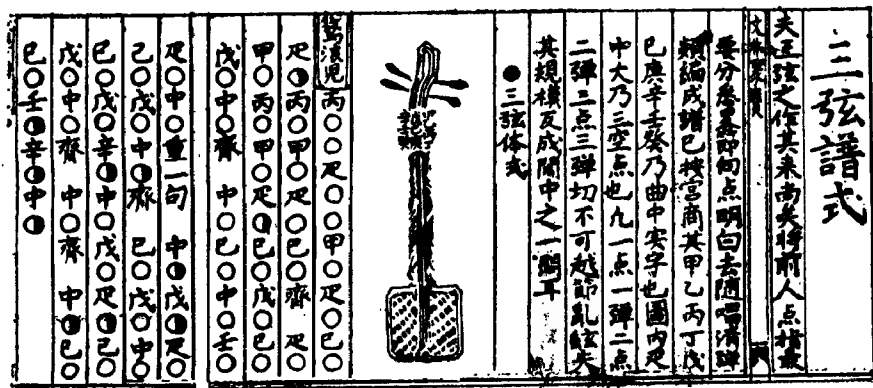 三弦譜式
夫三弦之作其来尚矣将前人点指最
要分悉畧即向点明白去随唱清弹
類編成譜已按宫商其甲乙丙丁戊
已庚辛壬癸乃曲中实字也圈内疋
中大乃三空点也凡一点一弹二点
二弹三点三弹切不可越節亂絃失
其規模反成閙中之一鬧耳
●三弦体式
浪児
丙○○疋○○甲○疋○已○
疋◑丙○甲○疋○已○齊 疋○
甲○丙○甲○疋◑已○戊○已○
戊○中○齊 中○已○中○壬○
疋○中○重一句 中◑戊◑疋○
已○戊○中◑齊 已○戊○中○
已○戊○辛◑中○戊○疋◑已○
戊○中○齊 中○齊 中◑已○
已○壬◑辛◑中◑